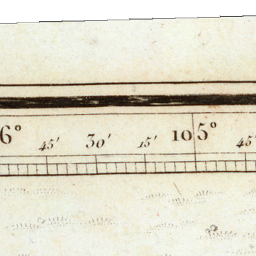 6° 45' 30' 15' 105° 45'